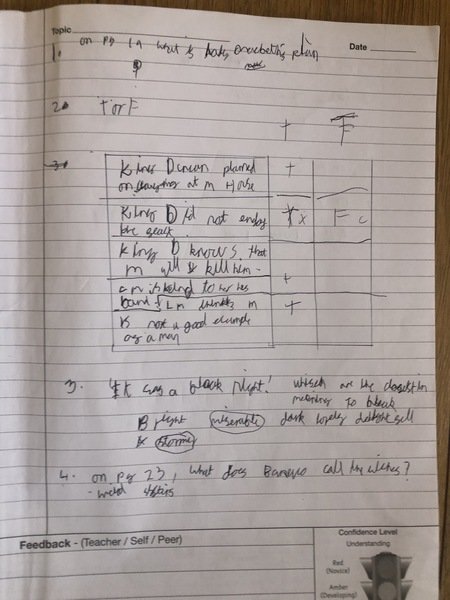 Topic
Date
1. on pg 19 what is lady macbeths plan
2. T or F
T F
King Duncan planned
on staying at m House
T
King D id not enjoy
the feast.
T x F c
King D knows that
m will kill him
T
Lm thinks m
is not a good example
as a man
T
3. 'It was a black night! which are the closest in
meaning to black
miserable dark lonely
stormy
4. on pg 23, what does Banquo call the witches?
- weird sisters
Feedback - (Teacher / Self / Peer)
Confidence Level
Understanding
Red
(Novice)
Amber
(Developing)